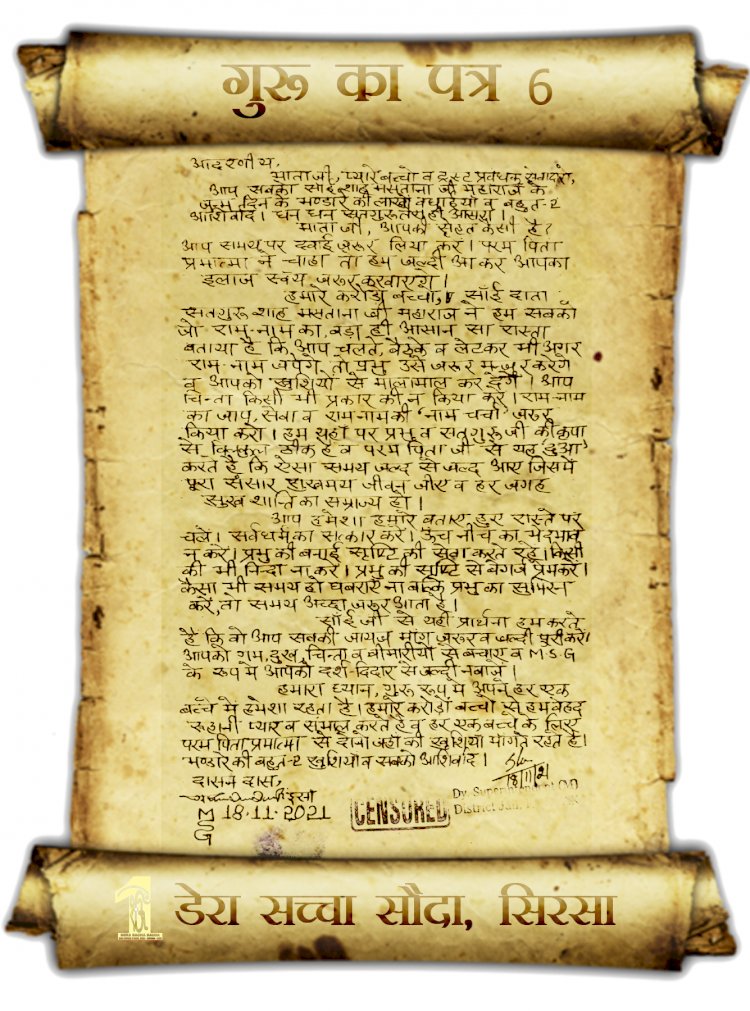 गुरू का पत्र 6
आदरणीय,
माताजी, प्यारे बच्चो व ट्रस्ट प्रबंधक सेवादारो,
आप सबको साँई शाह मस्ताना जी महाराज के
जन्म दिन के भण्डारे की लाखों बधाईयां व बहुत-2
आशिर्वाद। धन धन सतगुरु तेरा ही आसरा।
माता जी, आपकी सेहत कैसी है?
आप समय पर दवाई ज़रूर लिया करें। परम पिता
प्रमात्मा ने चाहा तो हम जल्दी आ कर आपका
इलाज स्वयं ज़रूर करवाएंगे।
हमारे करोड़ों बच्चो, साँई दाता
सतगुरु शाह मस्ताना जी महाराज ने हम सबको
जो राम-नाम का, बड़ा ही आसान सा रास्ता
बताया है कि आप चलते, बैठके व लेटकर भी अगर
राम-नाम जपेंगे, तो प्रभु उसे ज़रूर मन्जूर करेंगे
व आपको खुशियों से मालामाल कर देंगे। आप
चिन्ता किसी भी प्रकार की न किया करें। राम-नाम
का जाप, सेवा व रामनाम की 'नाम चर्चा' ज़रूर
किया करो। हम यहां पर प्रभु व सतगुरु जी की कृपा
से बिल्कुल ठीक हैं व परम पिता जी से यह दुआ
करते हैं कि ऐसा समय जल्द से जल्द आए जिसमें
पूरा संसार सुखमय जीवन जीए व हर जगह
सुख शान्ति का सम्राज्य हो।
आप हमेशा हमारे बताए हुए रास्ते पर
चलें। सर्वधर्म का सत्कार करें। ऊंच नीच का भेदभाव
न करें। प्रभु की बनाई सृष्टि की सेवा करते रहें। किसी
की भी निन्दा ना करें। प्रभु की सृष्टि से बेगर्ज प्रेम करें।
कैसा भी समय हो घबराएं ना बल्कि प्रभु का सुमिरन
करें, तो समय अच्छा ज़रूर आता है।
साँई जी से यही प्रार्थना हम करते
हैं कि वो आप सबकी जायज मांग ज़रूर व जल्दी पूरी करें।
आपको गम, दुख, चिन्ता व बीमारीयों से बचाएं व M.S.G
के रूप में आपको दर्श-दिदार से जल्दी नवाजें।
हमारा ध्यान, गुरु रूप में अपने हर एक
बच्चे में हमेशा रहता है। हमारे करोड़ों बच्चो से हम बेहद
रूहानी प्यार व संभाल करते हैं व हर एक बच्चे के लिए
परम पिता प्रमात्मा से दोनों जहां की खुशियां मांगते रहते हैं।
भण्डारे की बहुत-2 खुशियां व सबको आशिर्वाद।
18/11/21
दासन दास,
इंसां
M 18.11.2021
S
G
CENSORED
District Jail
डेरा सच्चा सौदा, सिरसा